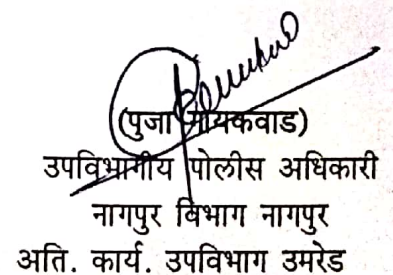 (पुजा गायकवाड)
उपविभागीय पोलीस अधिकारी
नागपुर विभाग नागपुर
अति. कार्य. उपविभाग उमरेड